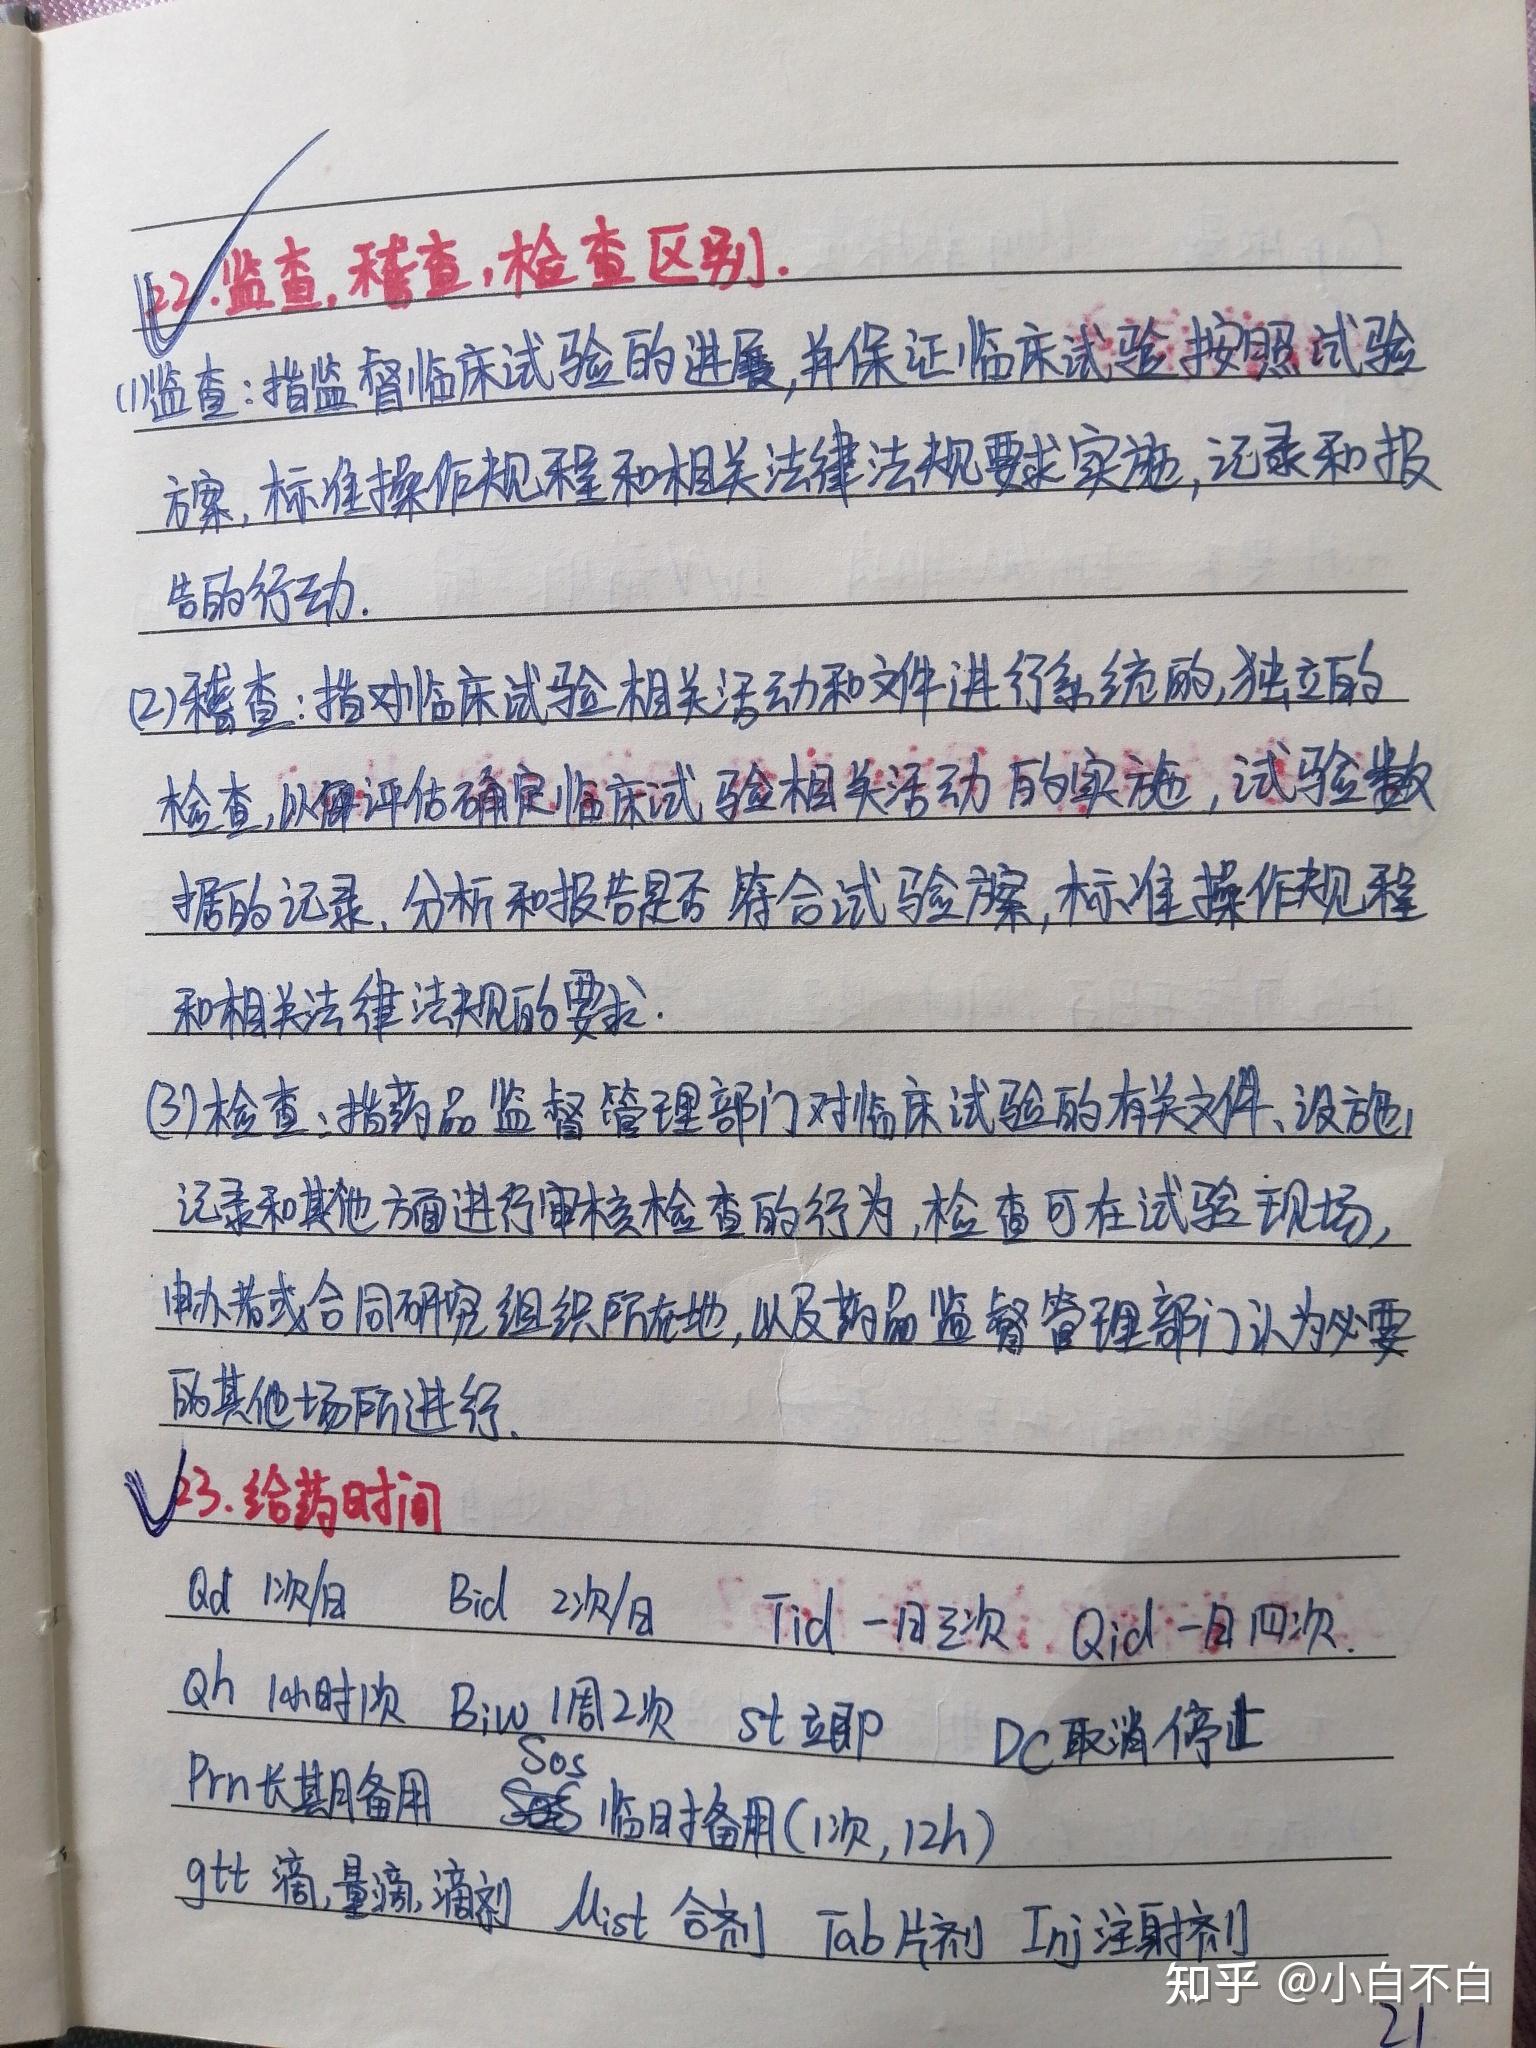 22.监查,稽查,检查区别.
(1)监查:指监督临床试验的进展,并保证临床试验按照试验
方案,标准操作规程和相关法律法规要求实施,记录和报
告的行动.
(2)稽查:指对临床试验相关活动和文件进行系统的,独立的
检查,以评估确定临床试验相关活动的实施,试验数
据的记录.分析和报告是否符合试验方案,标准操作规程
和相关法律法规的要求.
(3)检查:指药品监督管理部门对临床试验的有关文件、设施,
记录和其他方面进行审核检查的行为,检查可在试验现场,
申办者或合同研究组织所在地,以及药品监督管理部门认为必要
的其他场所进行.
23.给药时间
Qd 1次/日 Bid 2次/日 Tid 一日三次 Qid 一日四次.
Qh 1小时1次 Biw 1周2次 st 立即 DC取消停止
Prn长期备用 Sos 临时备用(1次,12h)
gtt 滴,量滴,滴剂 Mist 合剂 Tab片剂 Inj注射剂
知乎 @小白不白
21